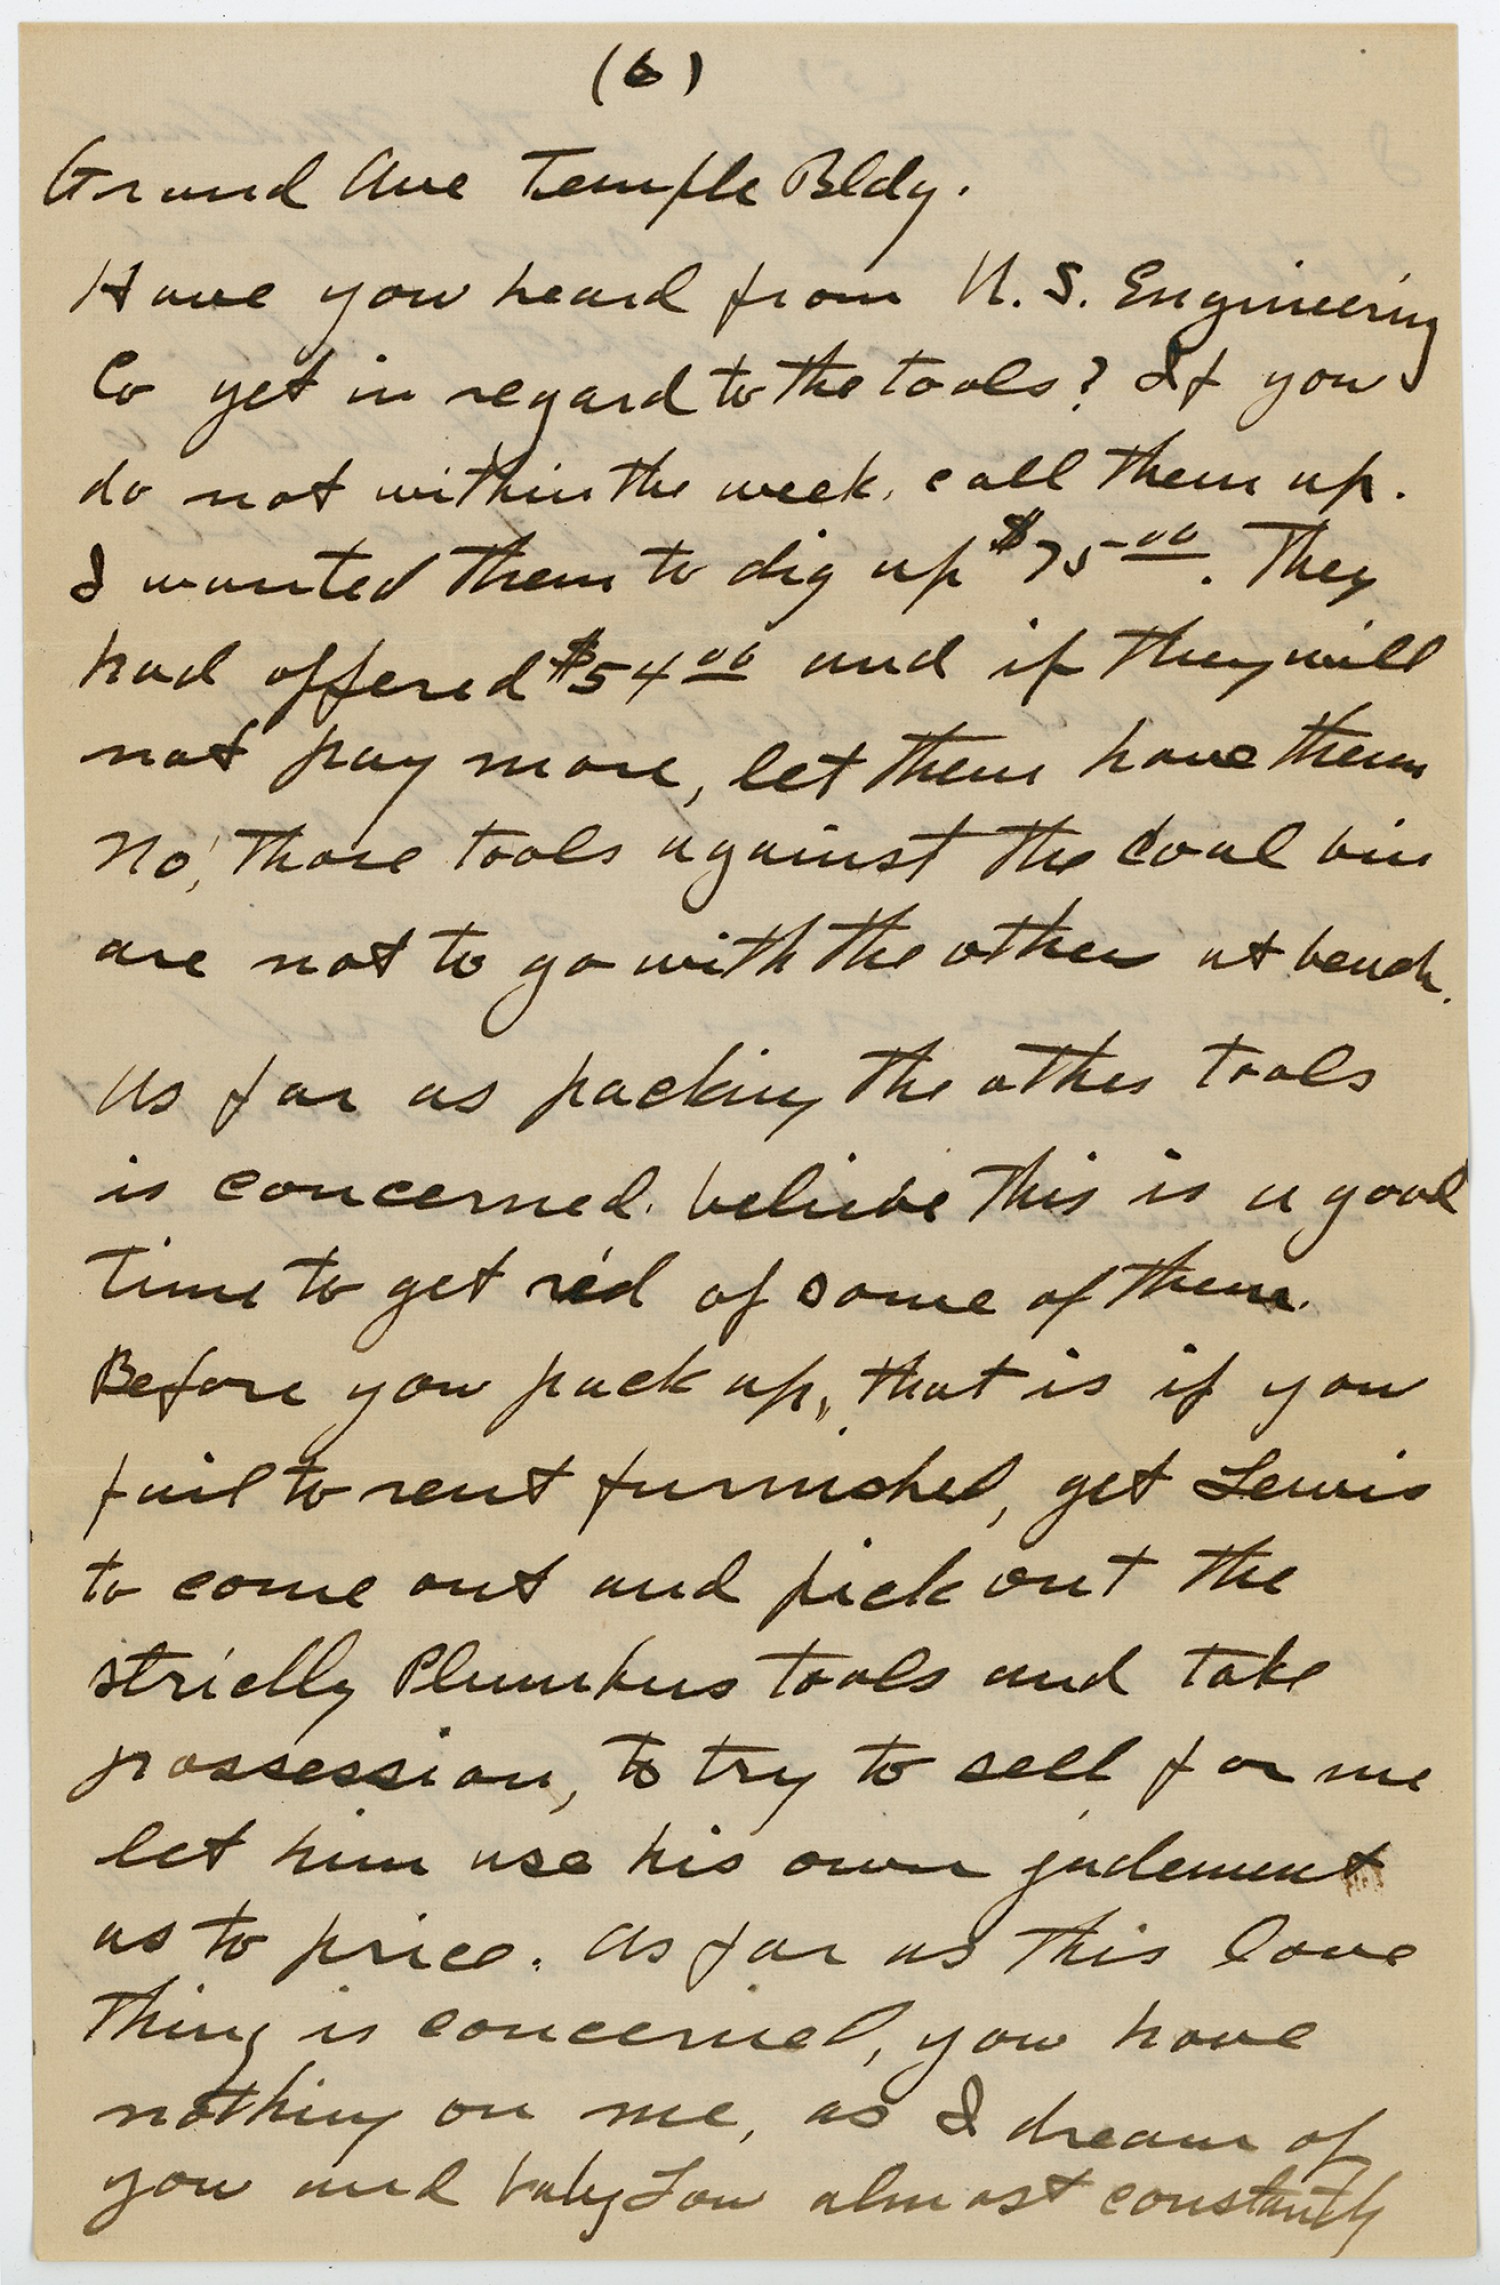 (6)
Grand Ave Temple Bldg.
Have you heard from U.S. Engineering
Co yet in regard to the tools? If you
do not within the week, call them up.
I wanted them to dig up $75.00. They
had offered $54.00 and if they will
not pay more, let them have them
No, those tools against the coal bin
are not to go with the others at bench.
As far as packing the other tools
is concerned. believe this is a good
time to get rid of some of them.
Before you pack up, that is if you
fail to rent furnished, get Lewis
to come out and pick out the
strictly Plumbers tools and take
possession, to try to sell for me
let him use his own judement
as to price. As far as this love
thing is concerned, you have
nothing on me, as I dream of
you and baby Lou almost constantly